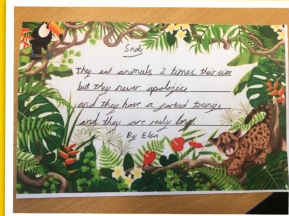 Snake
They eat animals 2 times their size
but they never apologise
and they have a forked tounge
and they are realy long
By Elsa